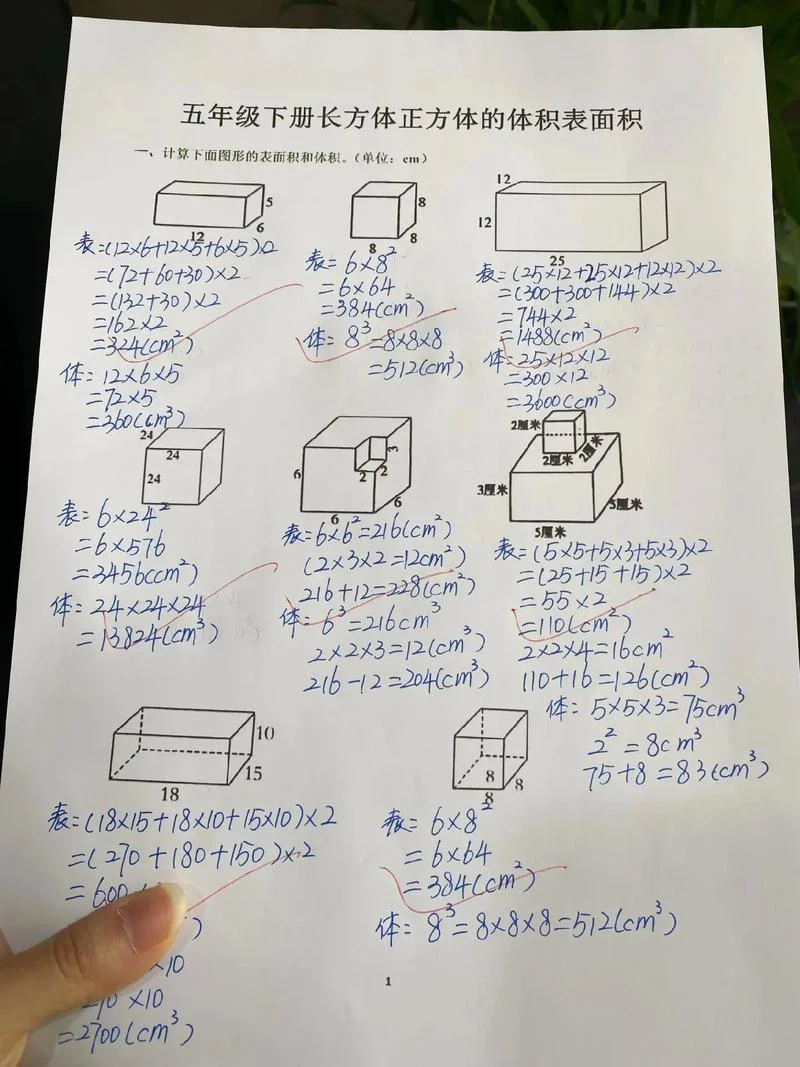 五年级下册长方体正方体的体积表面积
一、计算下面图形的表面积和体积。(单位：cm)
5
6
12
表=(12×6+12×5+6×5)×2
=(72+60+30)×2
=(132+30)×2
=162×2
=324(cm²)
体：12×6×5
=72×5
=360(cm³)
8
8
8
表=6×8²
=6×64
=384(cm²)
体：8³=8×8×8
=512(cm³)
12
12
25
表=(25×12+25×12+12×12)×2
=(300+300+144)×2
=744×2
=1488(cm²)
体：25×12×12
=300×12
=3600(cm³)
24
24
24
表=6×24²
=6×576
=3456(cm²)
体：24×24×24
=13824(cm³)
6
3
2
2
6
6
表=6×6²=216(cm²)
(2×3×2=12cm²)
216+12=228(cm²)
体：6³=216cm³
2×2×3=12(cm³)
216-12=204(cm³)
2厘米
2厘米
2厘米
3厘米
5厘米
5厘米
表=(5×5+5×3+5×3)×2
=(25+15+15)×2
=55×2
=110(cm²)
2×2×4=16cm²
110+16=126(cm²)
体：5×5×3=75cm³
2²=8cm³
75+8=83(cm³)
10
15
18
表=(18×15+18×10+15×10)×2
=(270+180+150)×2
=600
)
×10
270×10
=2700(cm³)
8
8
8
表=6×8²
=6×64
=384(cm²)
体：8³=8×8×8=512(cm³)
1